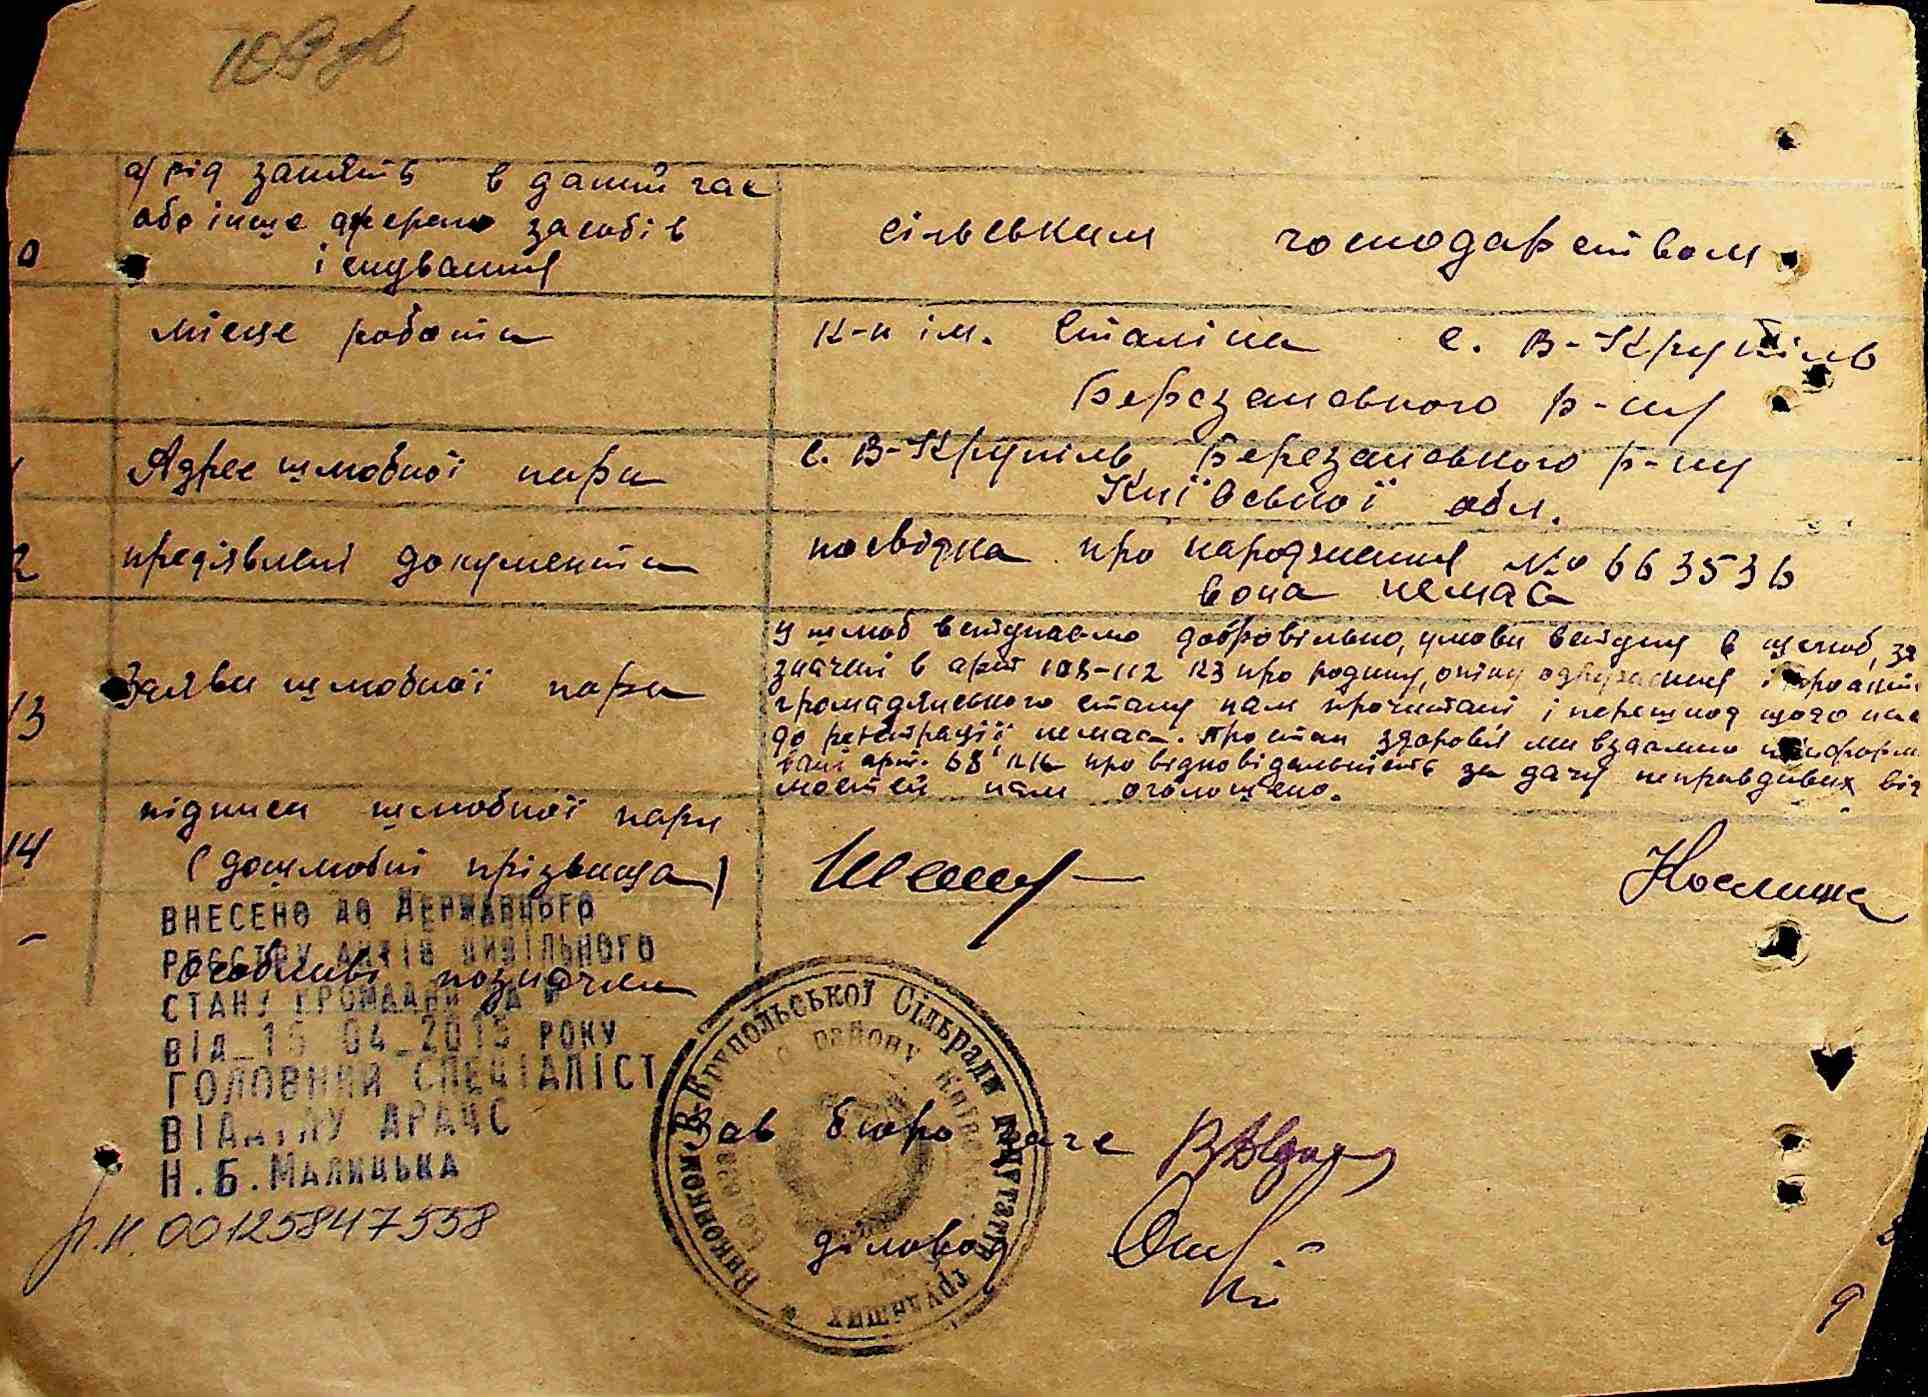 а) рід занять в даний час
або інше джерело засобів
існування
сільським господарством
місце роботи
к-п ім. Сталіна с. В-Крупіль
Березанського р-ну
Адрес шлюбної пари
с. В-Крупіль, Березанського р-ну
Київської обл.
предявлені документи
посвідка про народження № 663536
вона немає
13
Заяви шлюбної пари
У шлюб вступаємо добровільно, умови вступу в шлюб, за
значені в арт 108-112 КЗ про родину, опіку одруження і про акти
громадянського стану нам прочитані і перешкод щодо нас
до регетрації немає. Про стан здоровія ми взаємно поінформ
вані арт. 68 КК про відповідальність за дачу неправдивих від
мостей нам оголошено.
14
підписи шлюбної пари
(дошлюбні прізвища)
ВНЕСЕНО ДО ДЕРЖАВНОГО
РЕЄСТРУ АКТІВ ЦИВІЛЬНОГО
особливі позначки
СТАНУ ГРОМАДЯН ЗА №
ВІД_16 04_2015 РОКУ
ГОЛОВНИЙ СПЕЦІАЛІСТ
ВІДДІЛУ ДРАЦС
Н.Б.МАЛИЦЬКА
П.Н. 00125847558
Виконком В-Крупольської Сільради депутатів трудящих
району Київської
Зав бюро загс
діловод
9